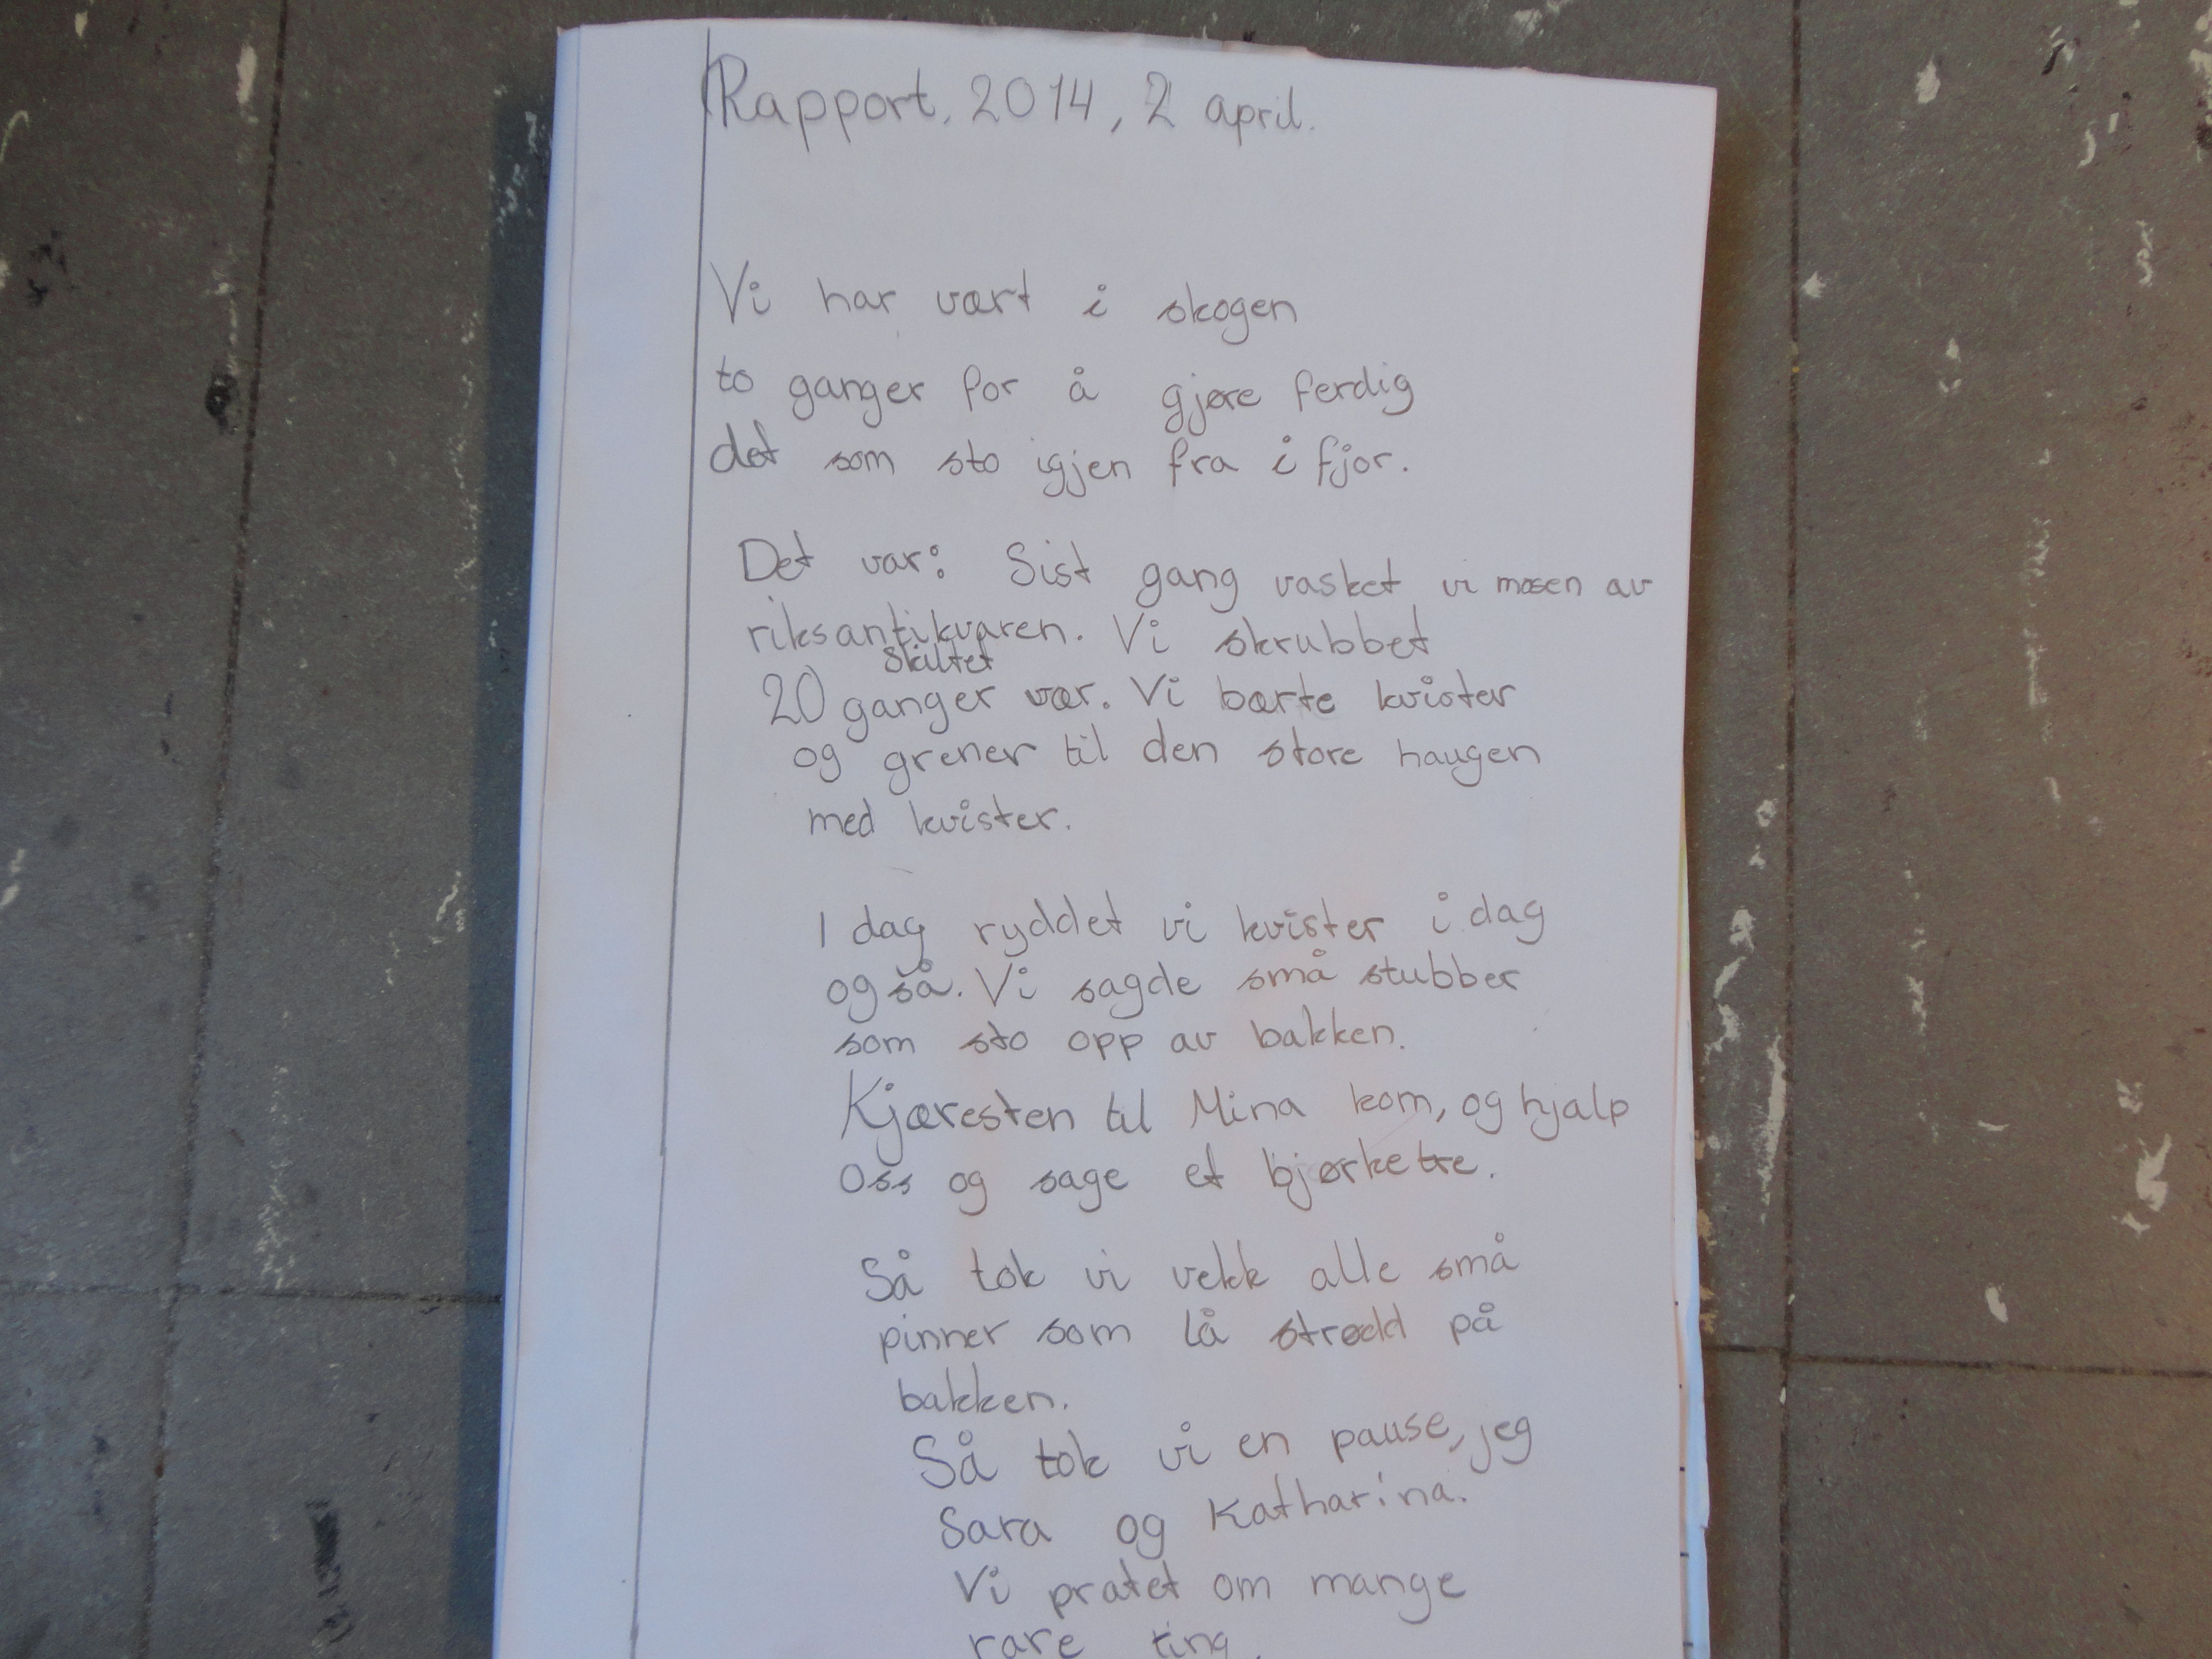 Rapport, 2014, 2 april.
Vi har vært i skogen
to ganger for å gjøre ferdig
det som sto igjen fra i fjor.
Det var: Sist gang vasket vi mosen av
riksantikvaren. Vi skrubbet
skiltet
20 ganger vær. Vi bærte kvister
og grener til den store haugen
med kvister.
I dag ryddet vi kvister i dag
også. Vi sagde små stubber
som sto opp av bakken.
Kjæresten til Mina kom, og hjalp
Oss og sage et bjørketre.
Så tok vi vekk alle små
pinner som lå strødd på
bakken.
Så tok vi en pause, jeg
Sara og Katharina.
Vi pratet om mange
rare ting.